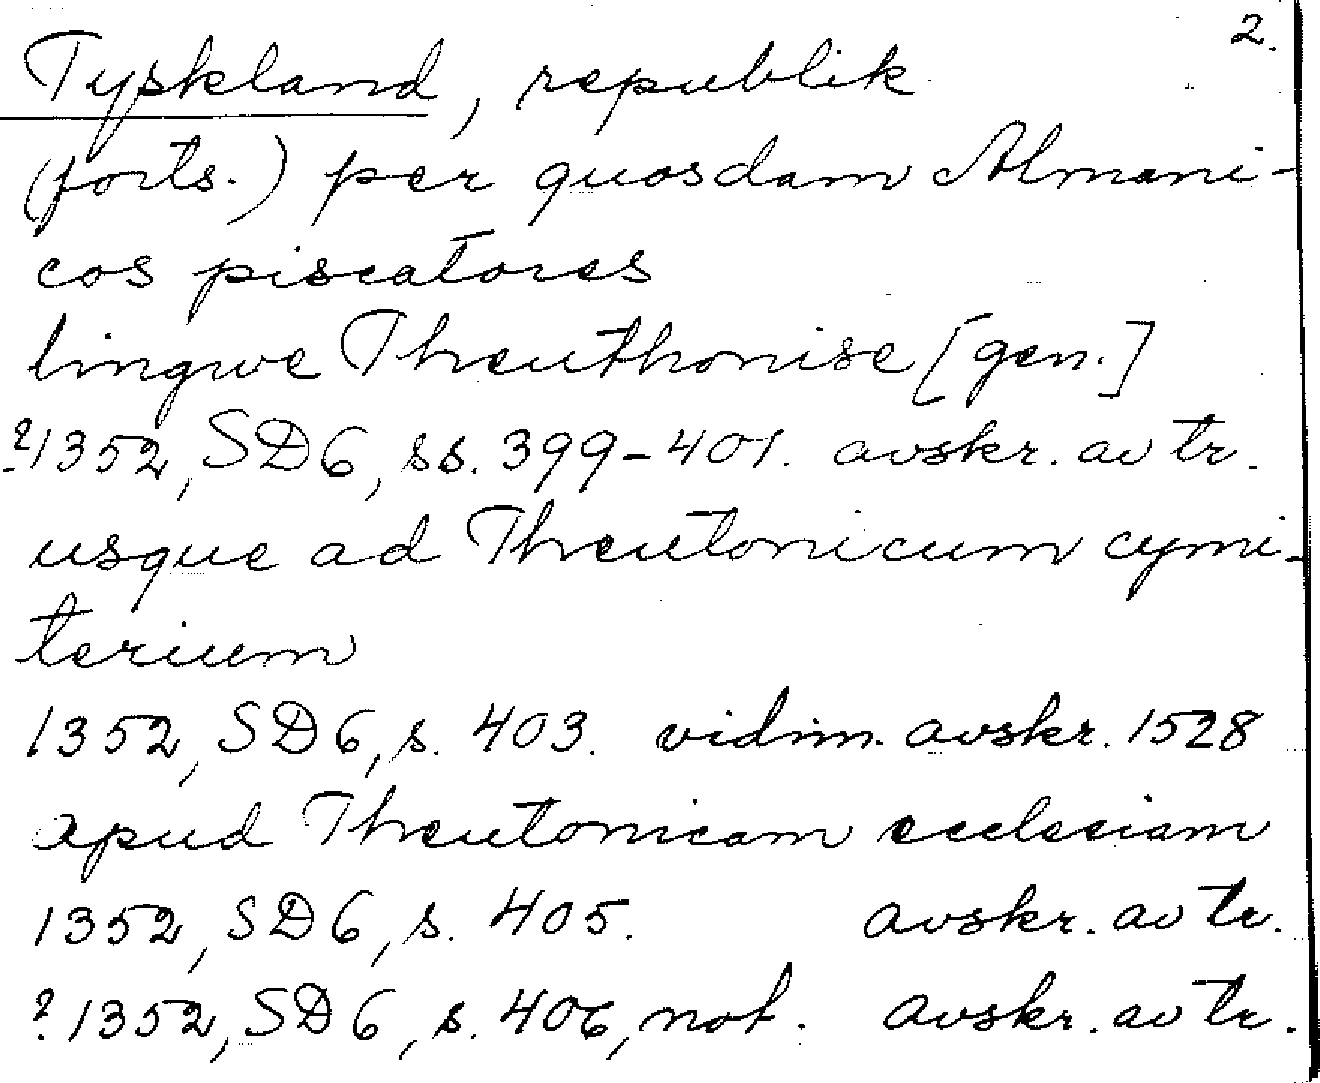 2.
Tyskland, republik
(forts.) per quosdam Almani-
cos piscatores
lingwe Theuthonise [gen.]
?1352, SD6, ss. 399-401. avskr. av tr.
usque ad Theutonicum cymi-
terium
1352, SD6, s. 403. vidim. avskr. 1528
apud Theutonicam ecclesiam
1352, SD6, s. 405. avskr. av tr.
?1352, SD6, s. 406, not. avskr. av tr.